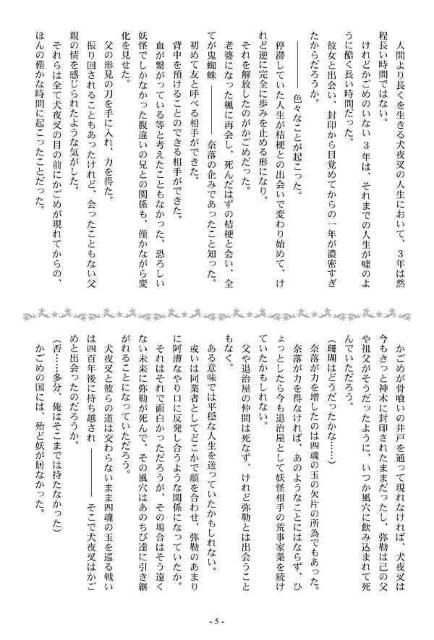 人間より長くを生きる犬夜叉の人生において、3年は然
程長い時間ではない。
けれどかごめのいない3年は、それまでの人生が嘘のよ
うに酷く長い時間だった。
彼女と出会い、封印から目覚めてからの一年が濃密すぎ
たからだろうか。
――――色々なことが起こった。
停滞していた人生が桔梗との出会いで変わり始めて、け
れど逆に完全に歩みを止める形になり。
それを解放したのがかごめだった。
老婆になった楓に再会し、死んだはずの桔梗と会い、全
てが鬼蜘蛛――――奈落の企みであったこと知った。
初めて友と呼べる相手ができた。
背中を預けることのできる相手ができた。
血が繋がっている等と考えたこともなかった、恐ろしい
妖怪でしかなかった腹違いの兄との関係も、僅かながら変
化を見せた。
父の形見の刀を手に入れ、力を得た。
振り回されることもあったけれど、会ったこともない父
親の情を感じられたような気がした。
それらは全て犬夜叉の目の前にかごめが現れてからの、
ほんの僅かな時間に起こったことだった。
かごめが骨喰いの井戸を通って現れなければ、犬夜叉は
今もきっと神木に封印されたままだったし、弥勒は己の父
や祖父がそうだったように、いつか風穴に飲み込まれて死
んでいただろう。
(珊瑚はどうだったかな……)
奈落が力を増したのは四魂の玉の欠片の所為でもあった。
奈落が力を得なければ、あのようなことにはならず、ひ
ょっとしたら今も退治屋として妖怪相手の荒事家業を続け
ていたかもしれない。
父や退治屋の仲間は死なず、けれど弥勒とは出会うこと
もなく。
ある意味では平穏な人生を送っていたかもしれない。
或いは同業者としてどこかで顔を合わせ、弥勒のあまり
に阿漕なやり口に反発し合うような関係になっていたか。
それはそれで面白かっただろうが、その場合はそう遠く
ない未来に弥勒が死んで、その風穴はあのちび達に引き継
がれることになっていただろう。
犬夜叉と彼らの道は交わらないまま四魂の玉を巡る戦い
は四百年後に持ち越され――――そこで犬夜叉はかご
めと出会ったのだろうか。
(否……多分、俺はそこまでは持たなかった)
かごめの国には、殆ど妖が居なかった。
- 5 -